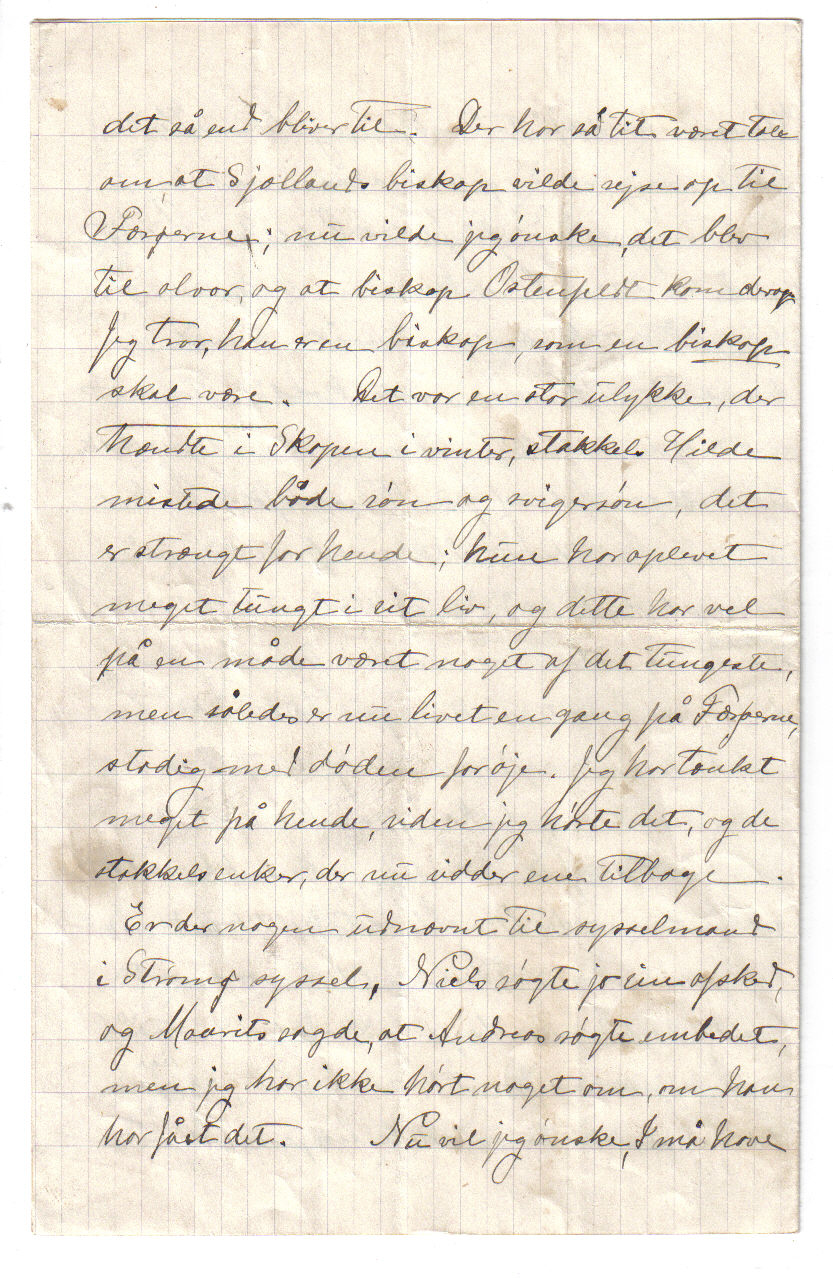 det så end bliver til. Der har så tit været tale
om, at Sjællands biskop vilde rejse op til
Færøerne; nu vilde jeg ønske, det blev
til alvor, og at biskop Ostenfeldt kom derop
Jeg tror, han er en biskop, som en biskop
skal være. Det var en stor ulykke, der
hændte i Skopen i vinter, stakkels Hilde
mistede både søn og svigersøn, det
er strængt for hende; hun har oplevet
meget tungt i sit liv, og dette har vel
på en måde været noget af det tungeste,
men således er nu livet en gang på Færøerne,
stadig med døden for øje. Jeg har tænkt
meget på hende, siden jeg hørte det, og de
stakkels enker, der nu sidder ene tilbage.
Er der nogen udnævnt til sysselmand
i Strømø syssel, Niels søgte jo sin afsked,
og Maurits sagde, at Andreas søgte embedet,
men jeg har ikke hørt noget om, om han
har fået det. Nu vil jeg ønske, I må have